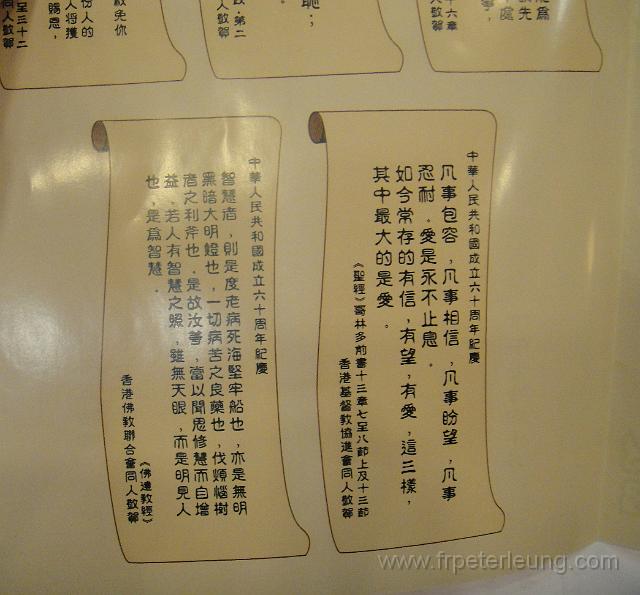 爲
先
處
事,
十六章
敬賀
恥;
。
第二
同人敬賀
赦免你
份人的
人將獲
賜恩,
至三十二
同人敬賀
中華人民共和國成立六十周年紀慶
凡事包容,凡事相信,凡事盼望,凡事
忍耐。愛是永不止息。
如今常存的有信,有望,有愛,這三樣,
其中最大的是愛。
《聖經》哥林多前書十三章七至八節上及十三節
香港基督教協進會同人敬賀
中華人民共和國成立六十周年紀慶
智慧者,則是度老病死海堅牢船也,亦是無明
黑暗大明燈也,一切病苦之良藥也,伐煩惱樹
者之利斧也。是故汝等,當以聞思修慧而自增
益。若人有智慧之照,雖無天眼,而是明見人
也,是爲智慧。
《佛遺教經》
香港佛教聯合會同人敬賀
www.frpeterleung.com